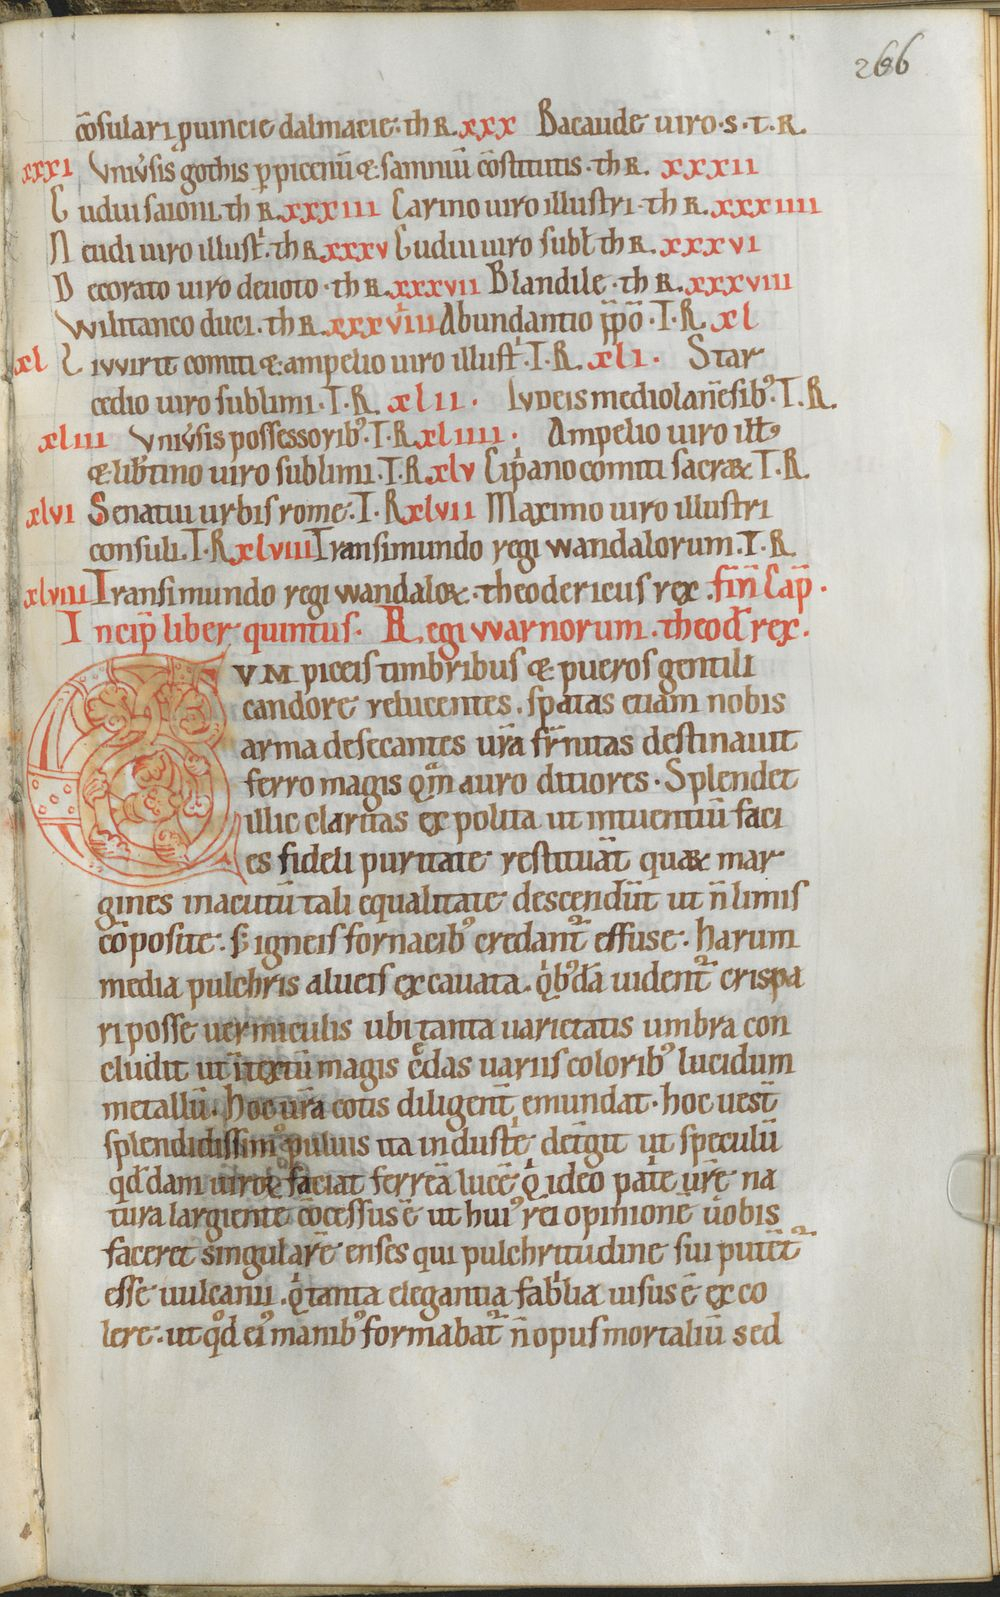 266
c̄osulari ꝓuincie dalmacie. th R. xxx Bacaude uiro. s. t. R.
xxxi Vniu̓sis gothis p̲ piceniū & samniū c̄ostitutis. th R. xxxii
Gudui saioni. th R. xxxiii Carino uiro illustri. th R. xxxiiii
Neudi uiro illust̓. th R xxxv Gudui uiro subl̄ th R. xxxvi
Decorato uiro deuoto. th R. xxxvii Blandile. th R. xxxviii
Wilitanco duci. th R. xxxviiii Abundantio p̄p̄o. T. R. xl
xl Liwirit comiti & ampelio uiro illust̓. T. R. xli. Star
cedio uiro sublimi. T. R. xlii. Iudeis mediolan̄esib᾿. T. R.
xliii Vniu̓sis possessorib᾿. T. R xliiii. Ampelio uiro ill̄
& lib̓tino uiro sublimi. T. R xlv Cip̓ano comiti sacraꝝ T. R
xlvi Senatui urbis rome. T. R xlvii Maximo uiro illustri
consuli. T. R xlviii Transimundo regi wandalorum. T. R
xlviiii Transimundo regi wandaloꝝ. theodericus rex. fin̄ Cap̄.
Incip̄ liber quintus. Regi warnorum. theod̄ rex.
CVM piceis timbribus & pueros gentili
candore relucentes. spatas etiam nobis
arma desecantes ur̄a fr̄nitas destinauit
ferro magis q̄m auro ditiores. Splendet
illic claritas expolita ut intuentiū faci
es fideli puritate restituāt quaꝝ mar
gines inacutū tali equalitate descendūt ut n̄ limis
cōposite. s; igneis fornacib᾿ credant᷑ effuse. harum
media pulchris alueis excauata. q̓b᾿dā uident᷑ crispa
ri posse uermiculis ubi tanta uarietatis umbra con
cludit ut īt̓extū magis c̓edas uariis colorib᾿ lucidum
metallū. hoc ur̄a cotis diligent̄ emundat. hoc uest̄
splendidissim᾿ puluis ita indust̓e det̓git ut speculū
qd̄dam uiroꝝ faciat ferreā lucē q̓ ideo pat̓e ur̄e na
tura largiente cōcessus ē ut hui᾿ rei opinionē uobis
faceret singularē enses qui pulchritudine sui putēt᷑
esse uulcanii. q̓ tanta elegantia fab̓lia uisus ē exco
lere. ut qd̓ ei᾿ manib᾿ formabat᷑ n̄ opus mortaliū sed